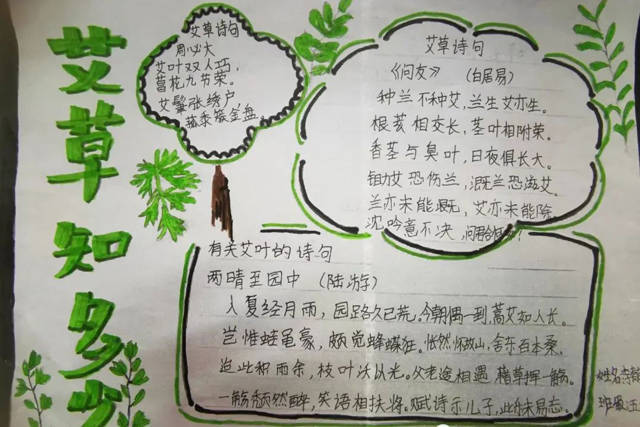 艾草知多少
艾草诗句
周必大
艾叶双人巧,
菖花九节荣。
艾鬉张绣户,
菰黍簇金盘。
艾草诗句
《问友》 (白居易)
种兰不种艾,兰生艾亦生。
根荄相交长,茎叶相附荣。
香茎与臭叶,日夜俱长大。
锄艾恐伤兰,溉兰恐滋艾。
兰亦未能溉,艾亦未能除。
沈吟意不决,问君合
有关艾叶的诗句
两晴至园中 (陆游)
入夏经月雨,园路久已荒。今朝偶一到,蒿艾如人长。
岂惟蛙黾豪,颇觉蜂蝶狂。怅然怀故山,舍东百本桑。
此积雨余,枝叶沃以光。父老迨相遇,藉草挥一觞。
一觞颓然醉,笑语相扶将。赋诗示儿子,此乐未易忘。
姓名
班级